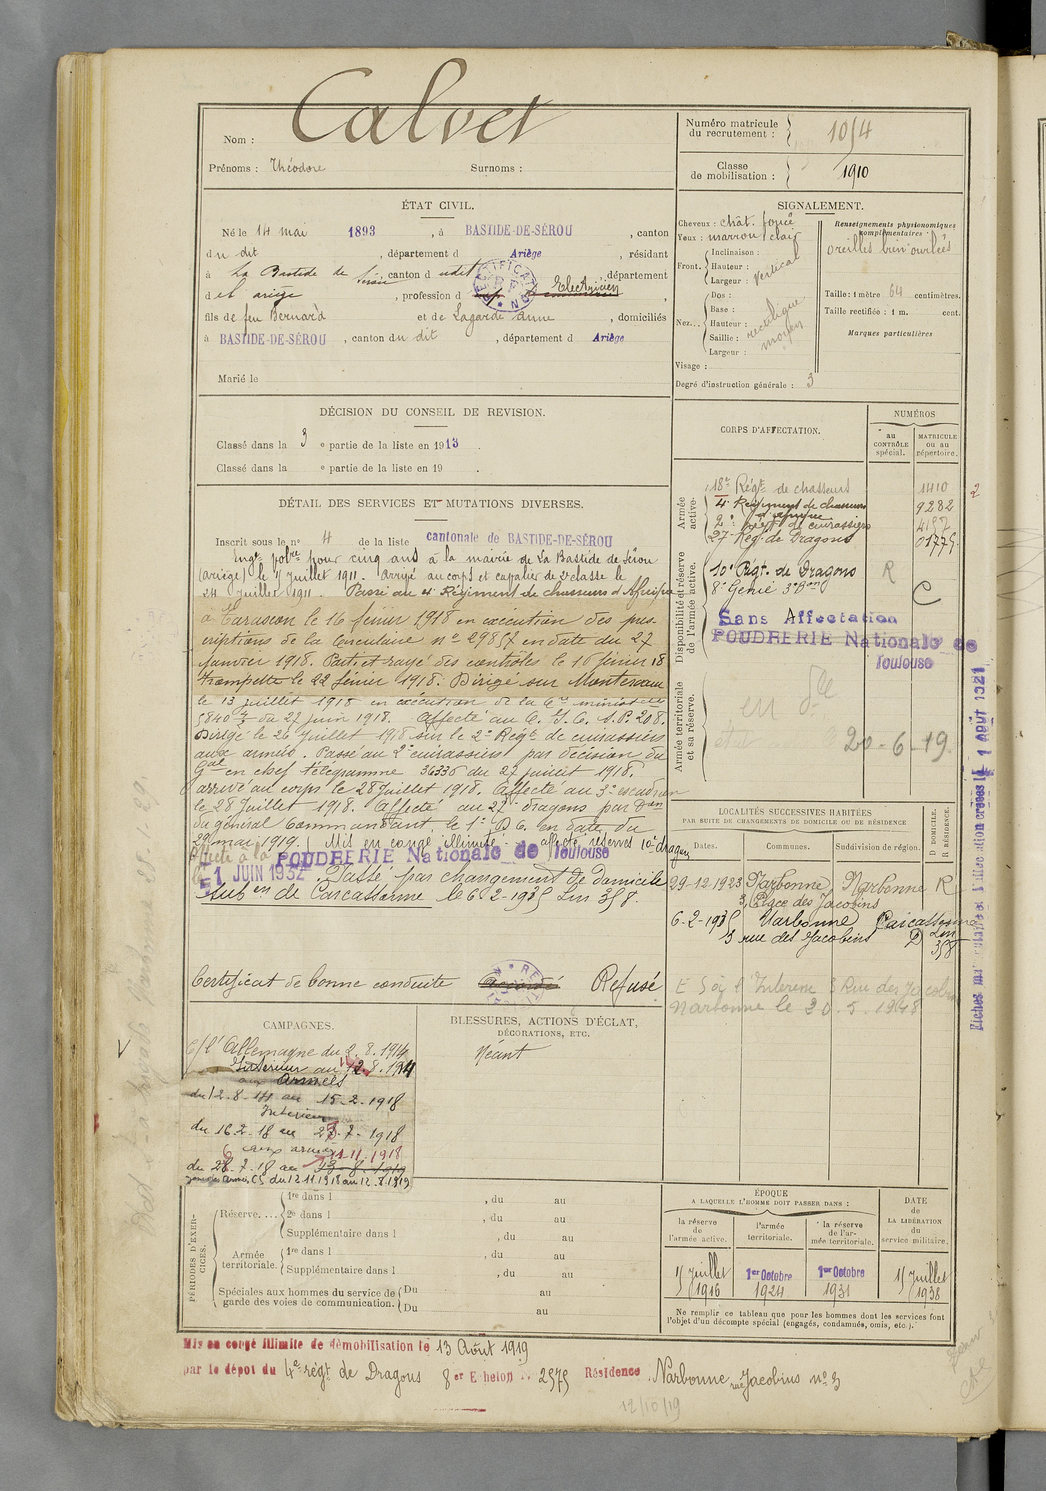 Nom : Calvet
Prénoms : Théodore Surnoms :
Numéro matricule du recrutement : 1054
Classe de mobilisation : 1910
ÉTAT CIVIL.
Né le 14 mai 1893, à BASTIDE-DE-SÉROU, canton
du dit, département d Ariège, résidant
à La Bastide de Sérou, canton d udit, département
d el ariège, profession d Electricien,
fils de feu Bernard et de Lagarde Anne, domiciliés
à BASTIDE-DE-SÉROU, canton du dit, département d Ariège
Marié le
SIGNALEMENT.
Cheveux : chât. foncé
Yeux : marron clair
Front. Inclinaison :
Hauteur : vertical
Largeur :
Nez... Dos :
Base :
Hauteur : rectiligne
Saillie : moyen
Largeur :
Visage :
Renseignements physionomiques complémentaires :
oreilles bien ourlées
Taille : 1 mètre 64 centimètres.
Taille rectifiée : 1 m. cent.
Marques particulières
Degré d'instruction générale : 3
DÉCISION DU CONSEIL DE REVISION.
Classé dans la 3 e partie de la liste en 1913.
Classé dans la e partie de la liste en 19 .
DÉTAIL DES SERVICES ET MUTATIONS DIVERSES.
Inscrit sous le n° 4 de la liste cantonale de BASTIDE-DE-SÉROU
Engt volre pour cinq ans à la mairie de La Bastide de Sérou
(ariège) le 15 Juillet 1911. Arrivé au corps et cavalier de 2e classe le
24 Juillet 1911. Passé au 4e Régiment de chasseurs d'Afrique
à Tarascon le 16 février 1918 en exécution des pres-
criptions de la Circulaire n° 29857 en date du 27
Janvier 1918. Parti et rayé des contrôles le 16 février 18
trompette le 22 février 1918. Dirigé sur Montesson
le 13 juillet 1918 en exécution de la Con ministelle
5840 du 27 juin 1918. Affecté au C. I. C. S.P. 208.
Dirigé le 26 Juillet 1918 sur le 2e Régt de cuirassiers
aux armées. Passé au 2e cuirassiers par décision du
Gal en chef télégramme 36336 du 27 juillet 1918.
arrivé au corps le 28 Juillet 1918. Affecté au 3e escadron
le 28 Juillet 1918. Affecté au 27e dragons par Don
du général Commandant le 1er D C. en date du
29 mai 1919. Mis en congé illimité affecté réserves 10e dragon
Affecté à la POUDRERIE Nationale de Toulouse
1 JUIN 1932 Passé par changement de domicile
Subon de Carcassonne le 6-2-1935 Lm 358.
Certificat de bonne conduite accordé Refusé
CORPS D'AFFECTATION.
NUMÉROS
au CONTRÔLE spécial.
MATRICULE ou au répertoire.
Armée active.
18e Régt de chasseurs 1410
4e Régiment de chasseurs d'afrique 9282
2e Régt de cuirassiers 4197
27e Rég. de Dragons 01775.
2
Disponibilité et réserve de l'armée active.
10e Régt. de Dragons R
8e Génie 3e Bon C
Sans Affectation
POUDRERIE Nationale de
Toulouse
Armée territoriale et sa réserve.
en Dle
20-6-19.
Fiches matriculaires d'Allocation créées le 1 AOÛT 1921
LOCALITÉS SUCCESSIVES HABITÉES
PAR SUITE DE CHANGEMENTS DE DOMICILE OU DE RÉSIDENCE
Dates. Communes. Subdivision de région. D DOMICILE. R RÉSIDENCE.
29-12-1923 Narbonne Narbonne R
3, Place des Jacobins
6-2-1935 Narbonne Carcassonne
3 rue des Jacobins D Lm 358
3 Rue des Jacobins
Narbonne le 20.5.1948
CAMPAGNES.
C/ l'Allemagne du 2.8.1914
Intérieur au 12.8.1914
aux armées
du 12-8-14 au 15-2-1918
Intérieur
du 16-2-18 au 27-7-1918
aux armées 11.11.1918
du 28-7-18 au 13-8-1919
du 12 11 1918 au 12.8.1919
BLESSURES, ACTIONS D'ÉCLAT,
DÉCORATIONS, ETC.
Néant
PÉRIODES D'EXERCICES.
Réserve.... 1re dans l , du au
2e dans l , du au
Supplémentaire dans l , du au
Armée territoriale. 1re dans l , du au
Supplémentaire dans l , du au
Spéciales aux hommes du service de garde des voies de communication. Du au
Du au
ÉPOQUE
A LAQUELLE L'HOMME DOIT PASSER DANS :
la réserve de l'armée active.
l'armée territoriale.
la réserve de l'armée territoriale.
DATE DE LA LIBÉRATION du service militaire.
15 Juillet 1916
1er Octobre 1924
1er Octobre 1931
15 Juillet 1938
Ne remplir ce tableau que pour les hommes dont les services font
l'objet d'un décompte spécial (engagés, condamnés, omis, etc.).
Mis en congé illimité de démobilisation le 13 Août 1919
par le dépôt du 4e régt de Dragons 8er Echelon N° 2575 Résidence Narbonne rue Jacobins n° 3
12/10/19